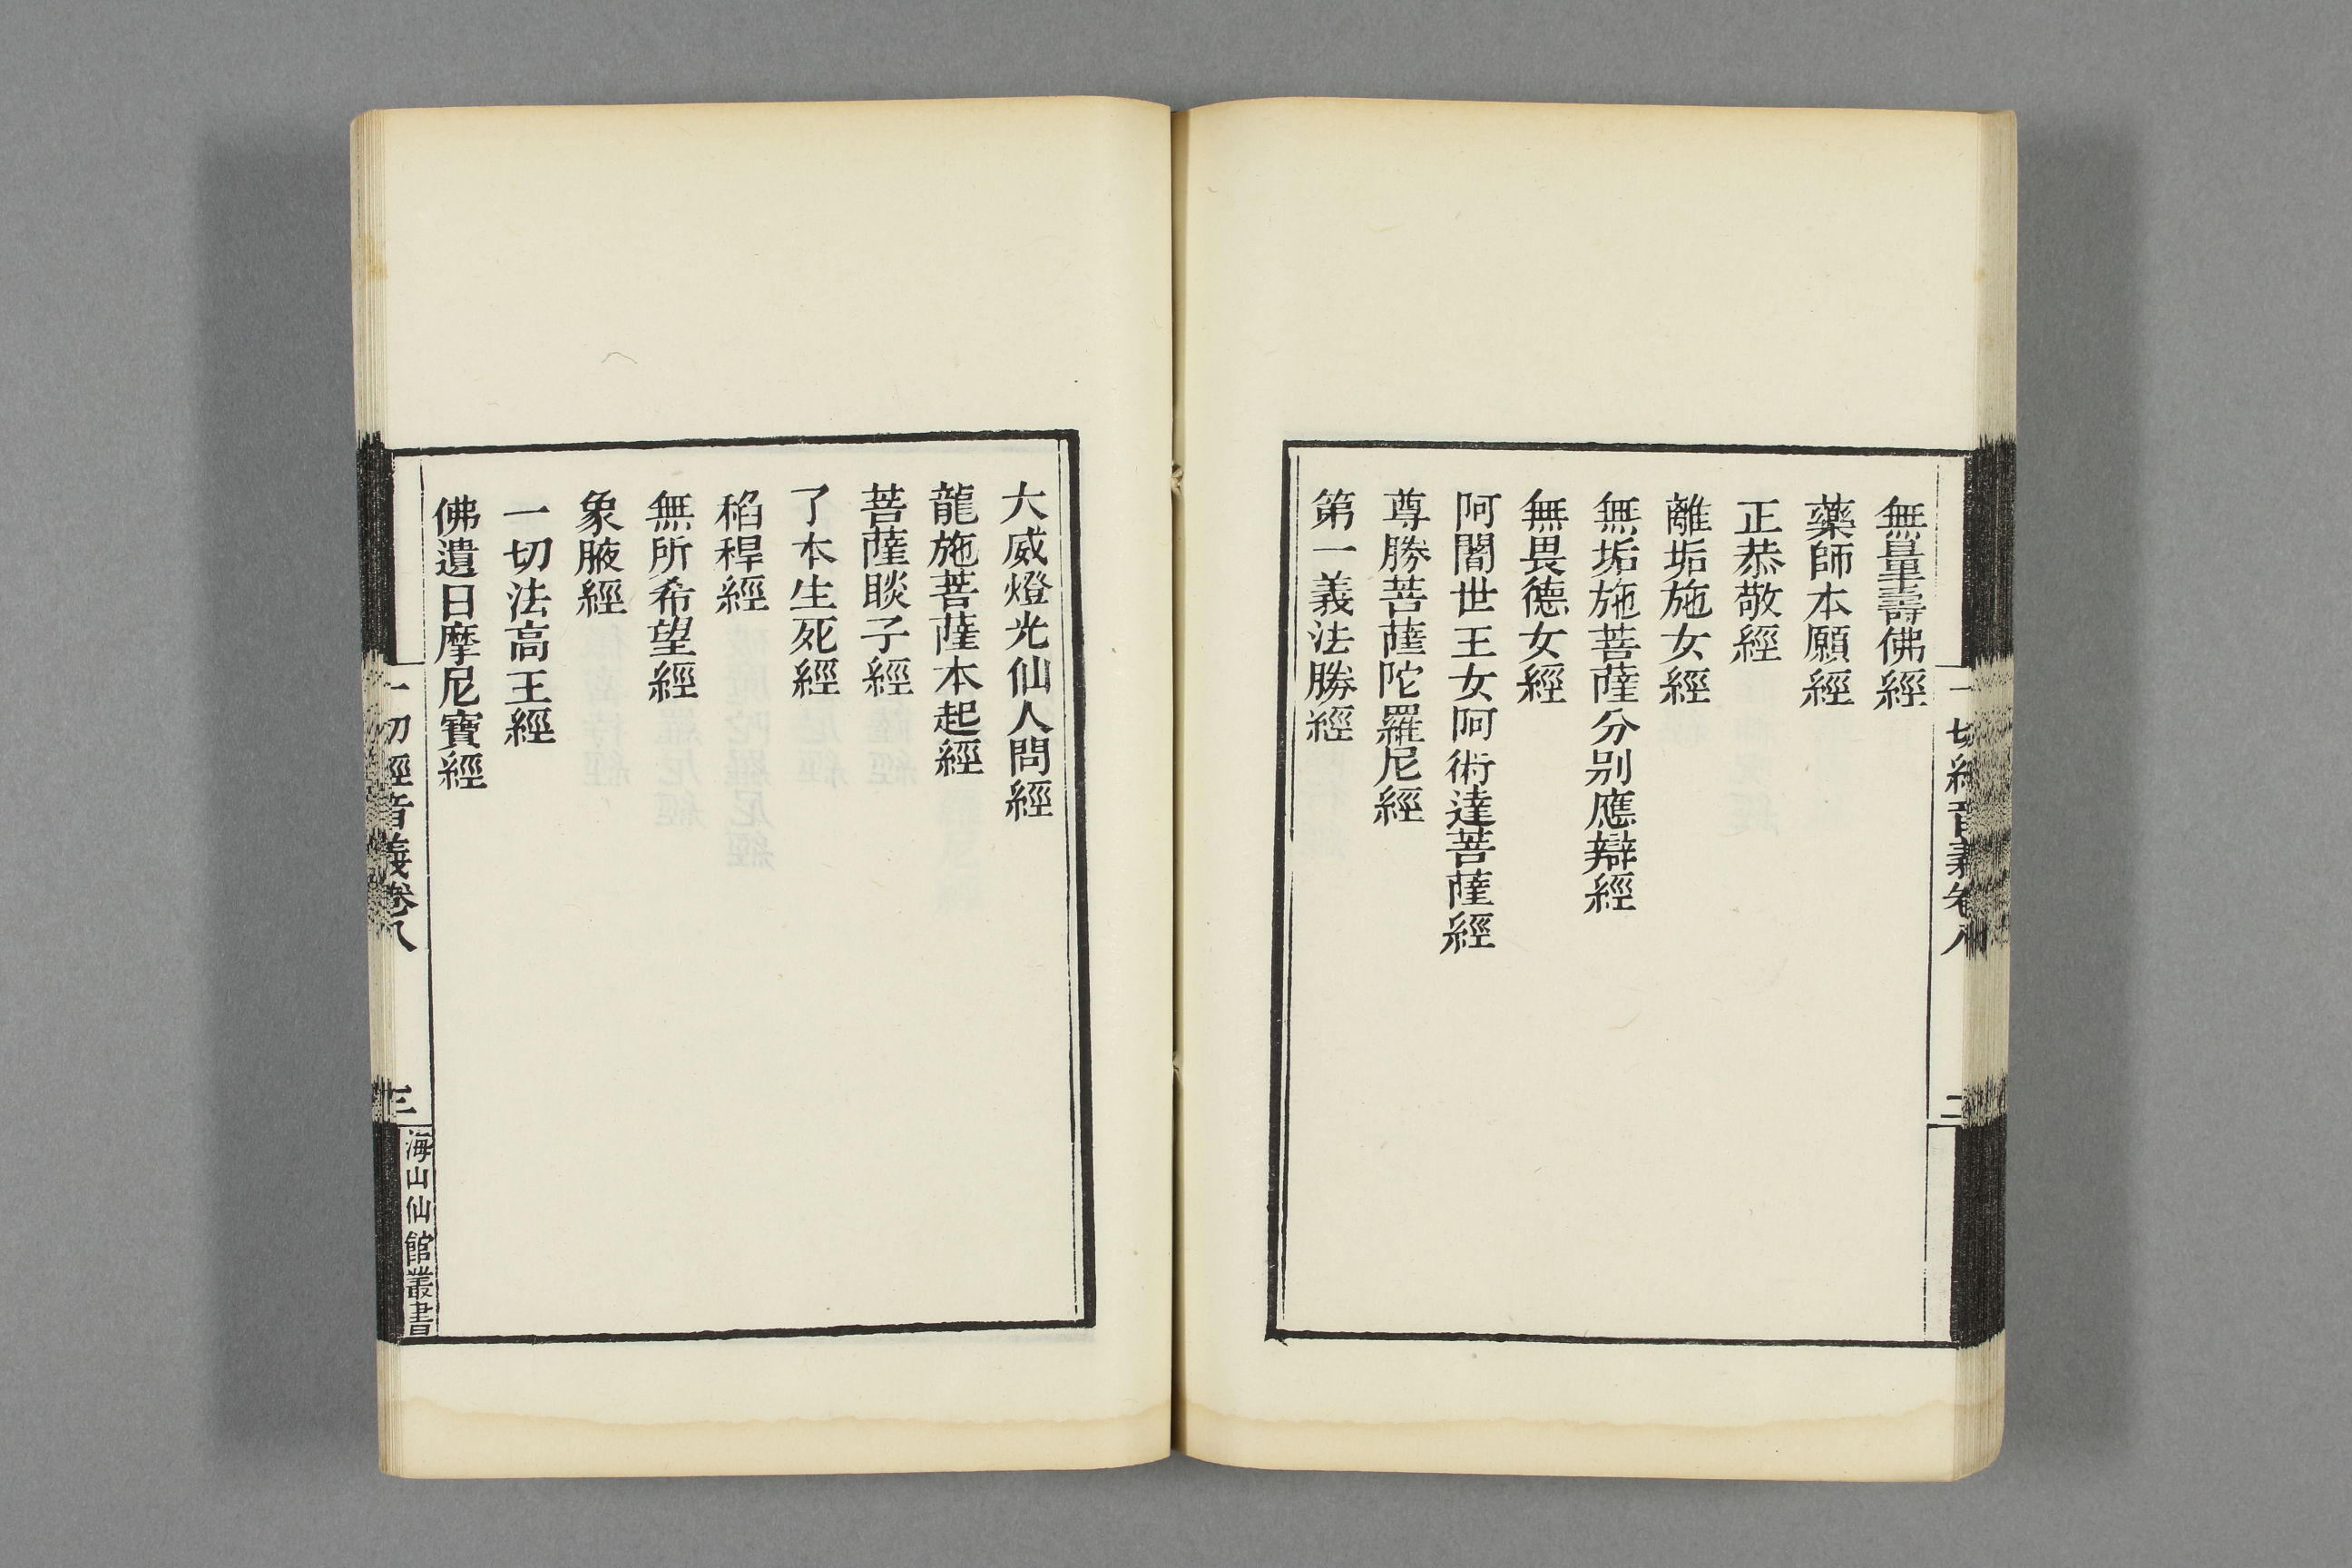 一切經音義卷八
二
無量壽佛經
藥師本願經
正恭敬經
離垢施女經
無垢施菩薩分别應辯經
無畏德女經
阿闍世王女阿術達菩薩經
尊勝菩薩陀羅尼經
第一義法勝經
大威燈光仙人問經
龍施菩薩本起經
菩薩睒子經
了本生死經
稻稈經
無所希望經
象腋經
一切法高王經
佛遺日摩尼寶經
一切經音義卷八
三
海山仙館叢書